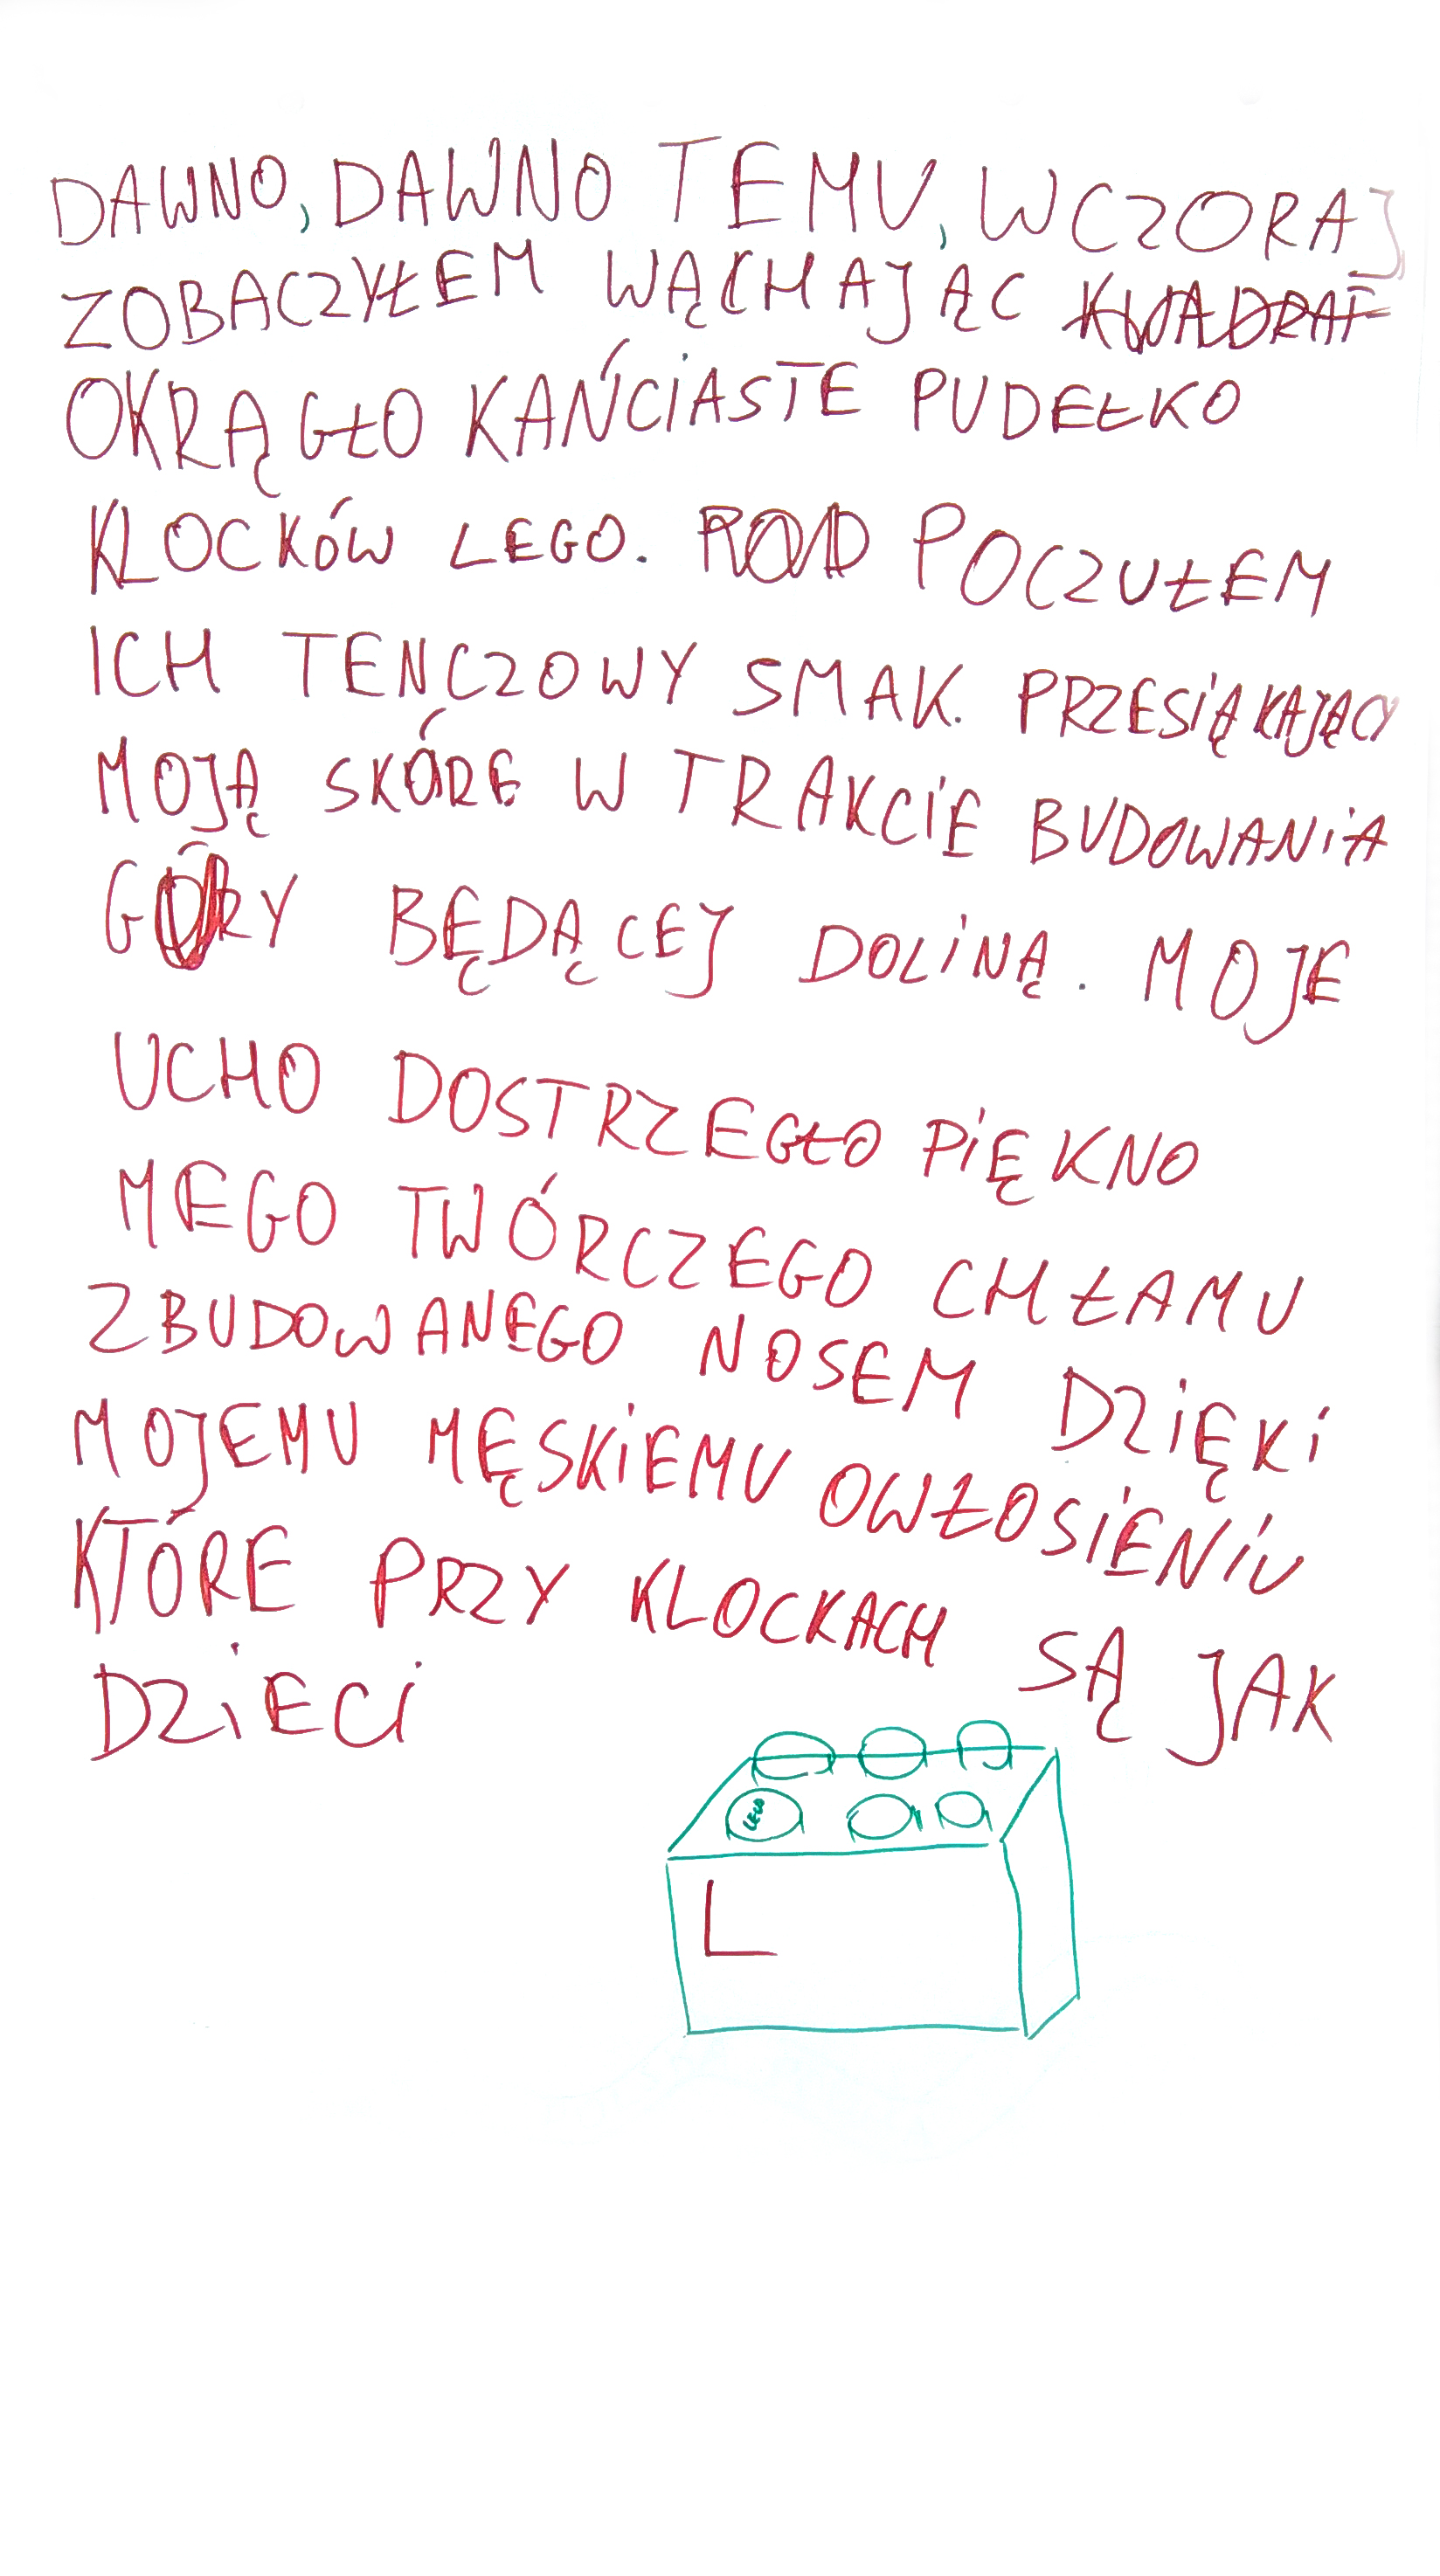 DAWNO, DAWNO TEMU, WCZORAJ
ZOBACZYŁEM WĄCHAJĄC KWADRAT
OKRĄGŁO KAŃCIASTE PUDEŁKO
KLOCKÓW LEGO. POCZUŁEM
ICH TENCZOWY SMAK. PRZESIĄKAJĄCY
MOJĄ SKÓRĘ W TRAKCIE BUDOWANIA
GÓRY BĘDĄCEJ DOLINĄ. MOJE
UCHO DOSTRZEGŁO PIĘKNO
MEGO TWÓRCZEGO CHŁAMU
ZBUDOWANEGO NOSEM DZIĘKI
MOJEMU MĘSKIEMU OWŁOSIENIU
KTÓRE PRZY KLOCKACH SĄ JAK
DZIECI
LEGO
L